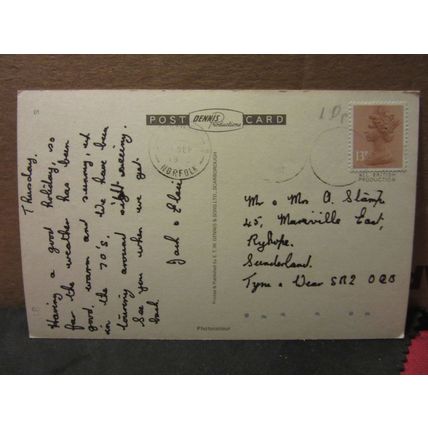 POST DENNIS Productions CARD
1Dp
13P
SEP
NORFOLK
ALL BRITISH
PRODUCTION
Thursday.
Having a good holiday, so
far the weather has been
good, warm and sunny, up
in the 70's. We have been
touring around sight seeing.
See you when we get
back
Jack &
Printed & Published by E.T.W. DENNIS & SONS LTD., SCARBOROUGH
Mr & Mrs A. Stamp
45, Maraville East,
Ryhope.
Sunderland.
Tyne & Wear SR2 0QB
Photocolour